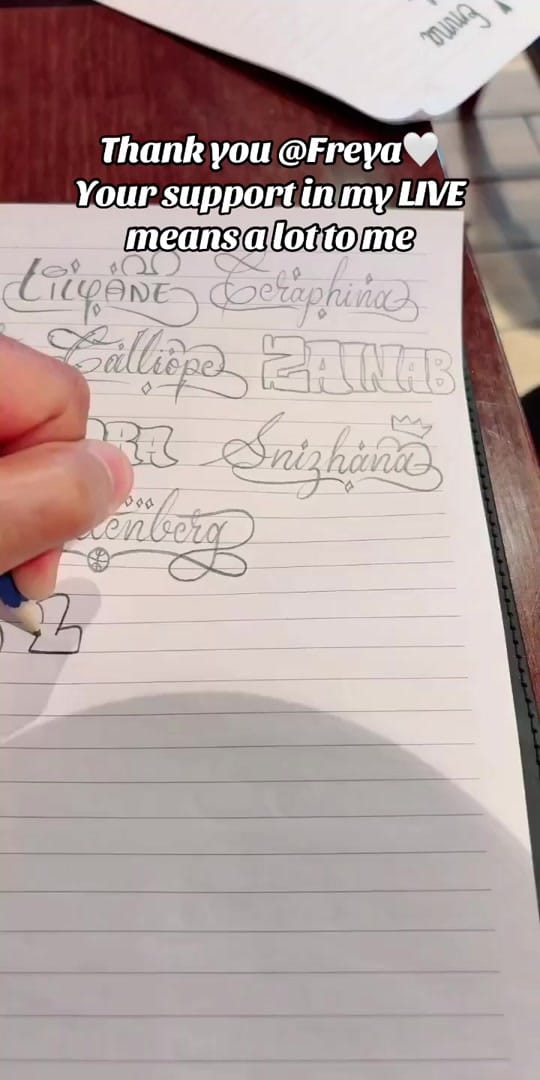 Emma
Thank you @Freya🤍
Your support in my LIVE
means a lot to me
LilyANE Seraphina
Calliope ZAINAB
RA Snizhana
enberg